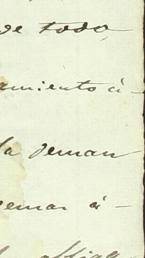 de todo
amiento á-
la deman
demas á-